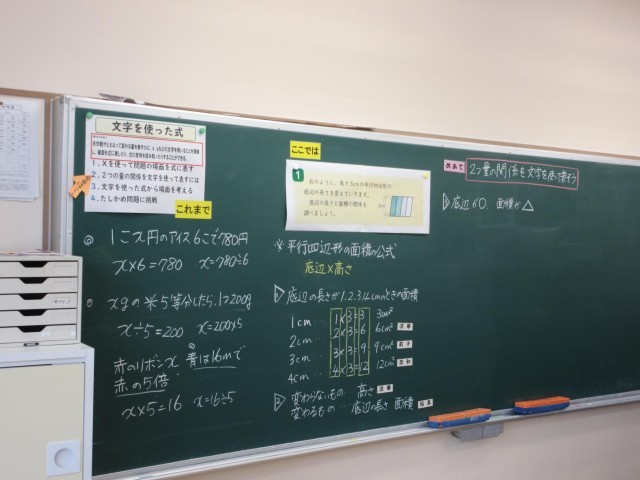 文字を使った式
1．Xを使って問題の場面を式に表す
2．2つの量の関係を文字を使って表すには
3．文字を使った式から場面を考える
4．たしかめ問題に挑戦
これまで
1こx円のアイス6こで780円
x×6=780 x=780÷6
xgの米5等分したら、1つ200g
x÷5=200 x=200×5
赤のリボンx 青は16mで
赤の5倍
x×5=16 x=16÷5
ここでは
1
右のように、高さ3cmの平行四辺形の
底辺の長さを変えていきます。
底辺の長さと面積の関係を
調べましょう。
※平行四辺形の面積の公式
底辺×高さ
底辺の長さが1.2.3.4cmのときの面積
1cm… 1×3=3 3cm²
2cm… 2×3=6 6cm²
3cm… 3×3=9 9cm²
4cm… 4×3=12 12cm²
変わらないもの… 高さ
変わるもの… 底辺の長さ 面積
めあて
2つ量の関係を文字を使って表そう
底辺が○、面積が△